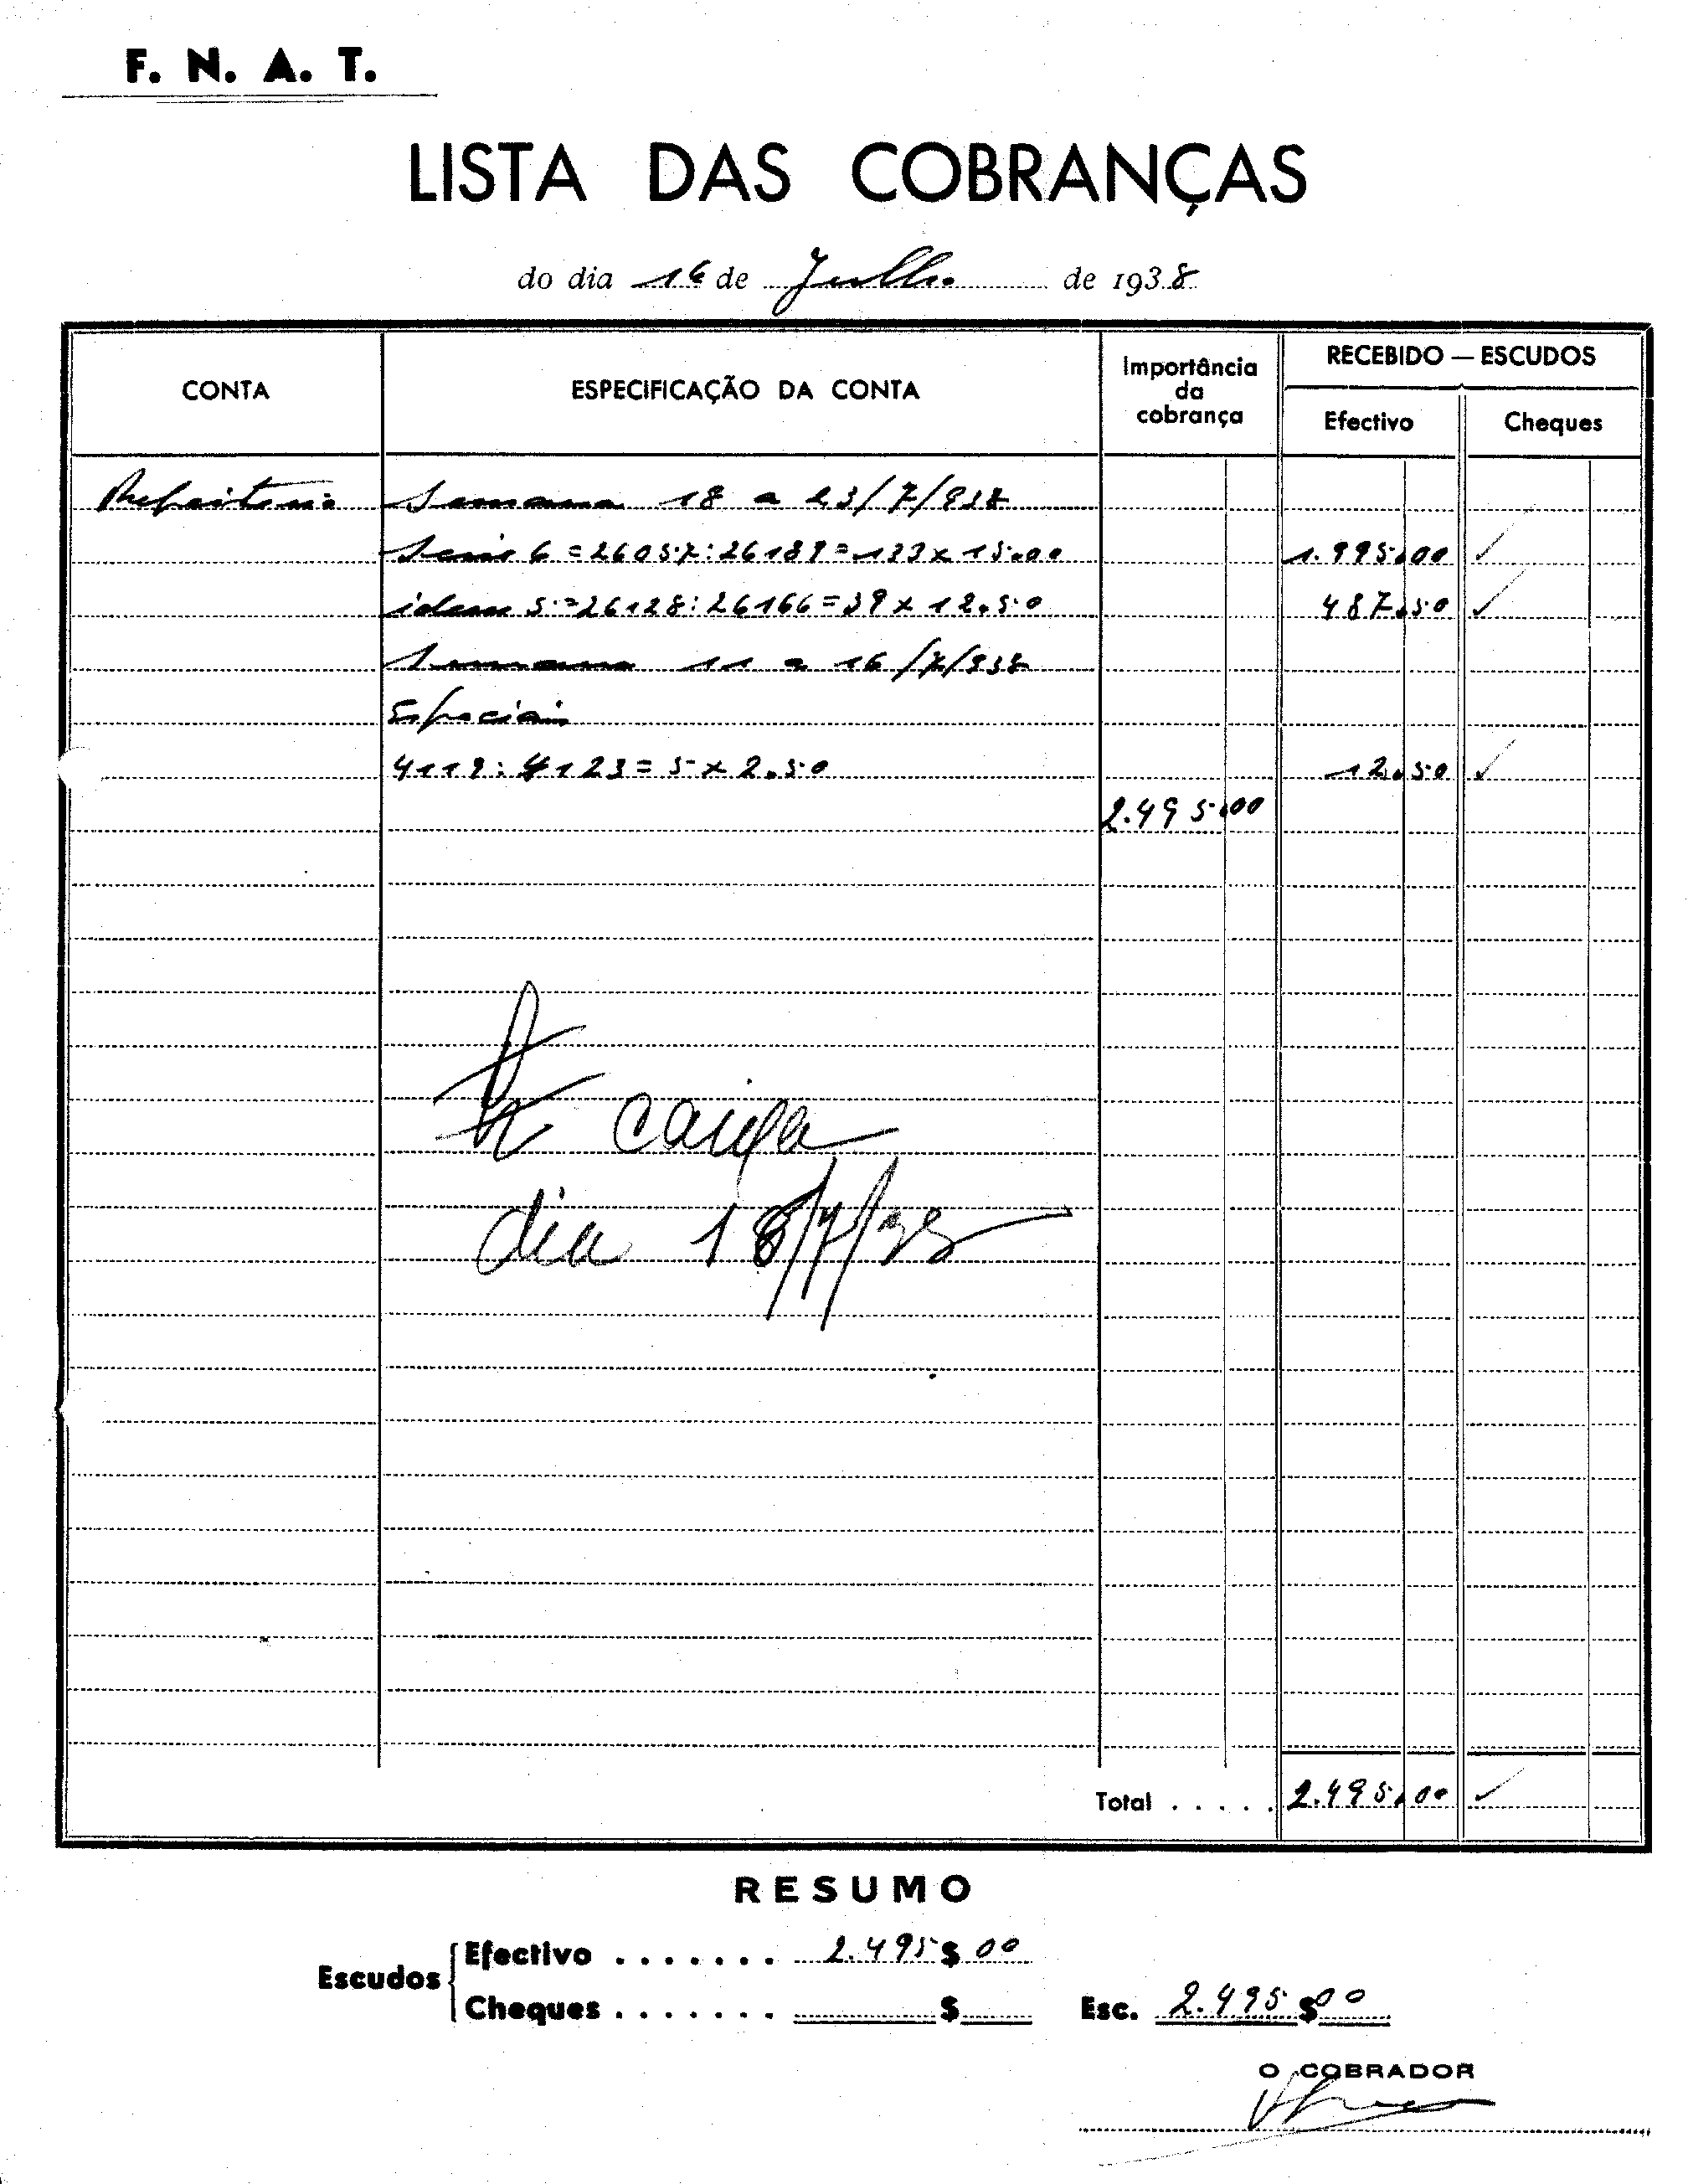 F. N. A. T.
LISTA DAS COBRANÇAS
do dia 16 de Julho de 1938
CONTA
ESPECIFICAÇÃO DA CONTA
Importância da cobrança
RECEBIDO — ESCUDOS
Efectivo
Cheques
Refeitorio Semana 18 a 23/7/938
Senis 6 = 26057:26189 = 133 x 15.00 1.995.00
idem 5 = 26128:26166 = 39 x 12.50 487.50
Semana 11 a 16/7/938
Especiais
4119:4123 = 5 x 2.50 12.50
2.495.00
caixa
dia 18/7/38
Total . . . . . 2.495.00
RESUMO
Escudos
Efectivo . . . . . . . 2.495$00
Cheques . . . . . . . $
Esc. 2.495$00
O COBRADOR